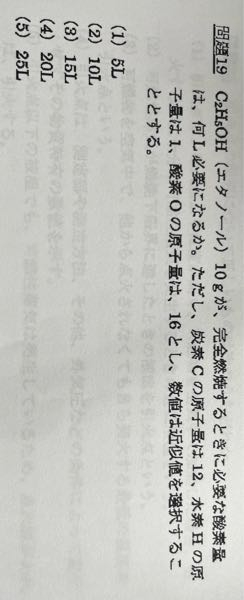 問題19 C₂H₅OH（エタノール）10gが、完全燃焼するときに必要な酸素量
は、何L必要になるか。ただし、炭素Cの原子量は12、水素Hの原
子量は1、酸素Oの原子量は、16とし、数値は近似値を選択するこ
ととする。
(1) 5L
(2) 10L
(3) 15L
(4) 20L
(5) 25L